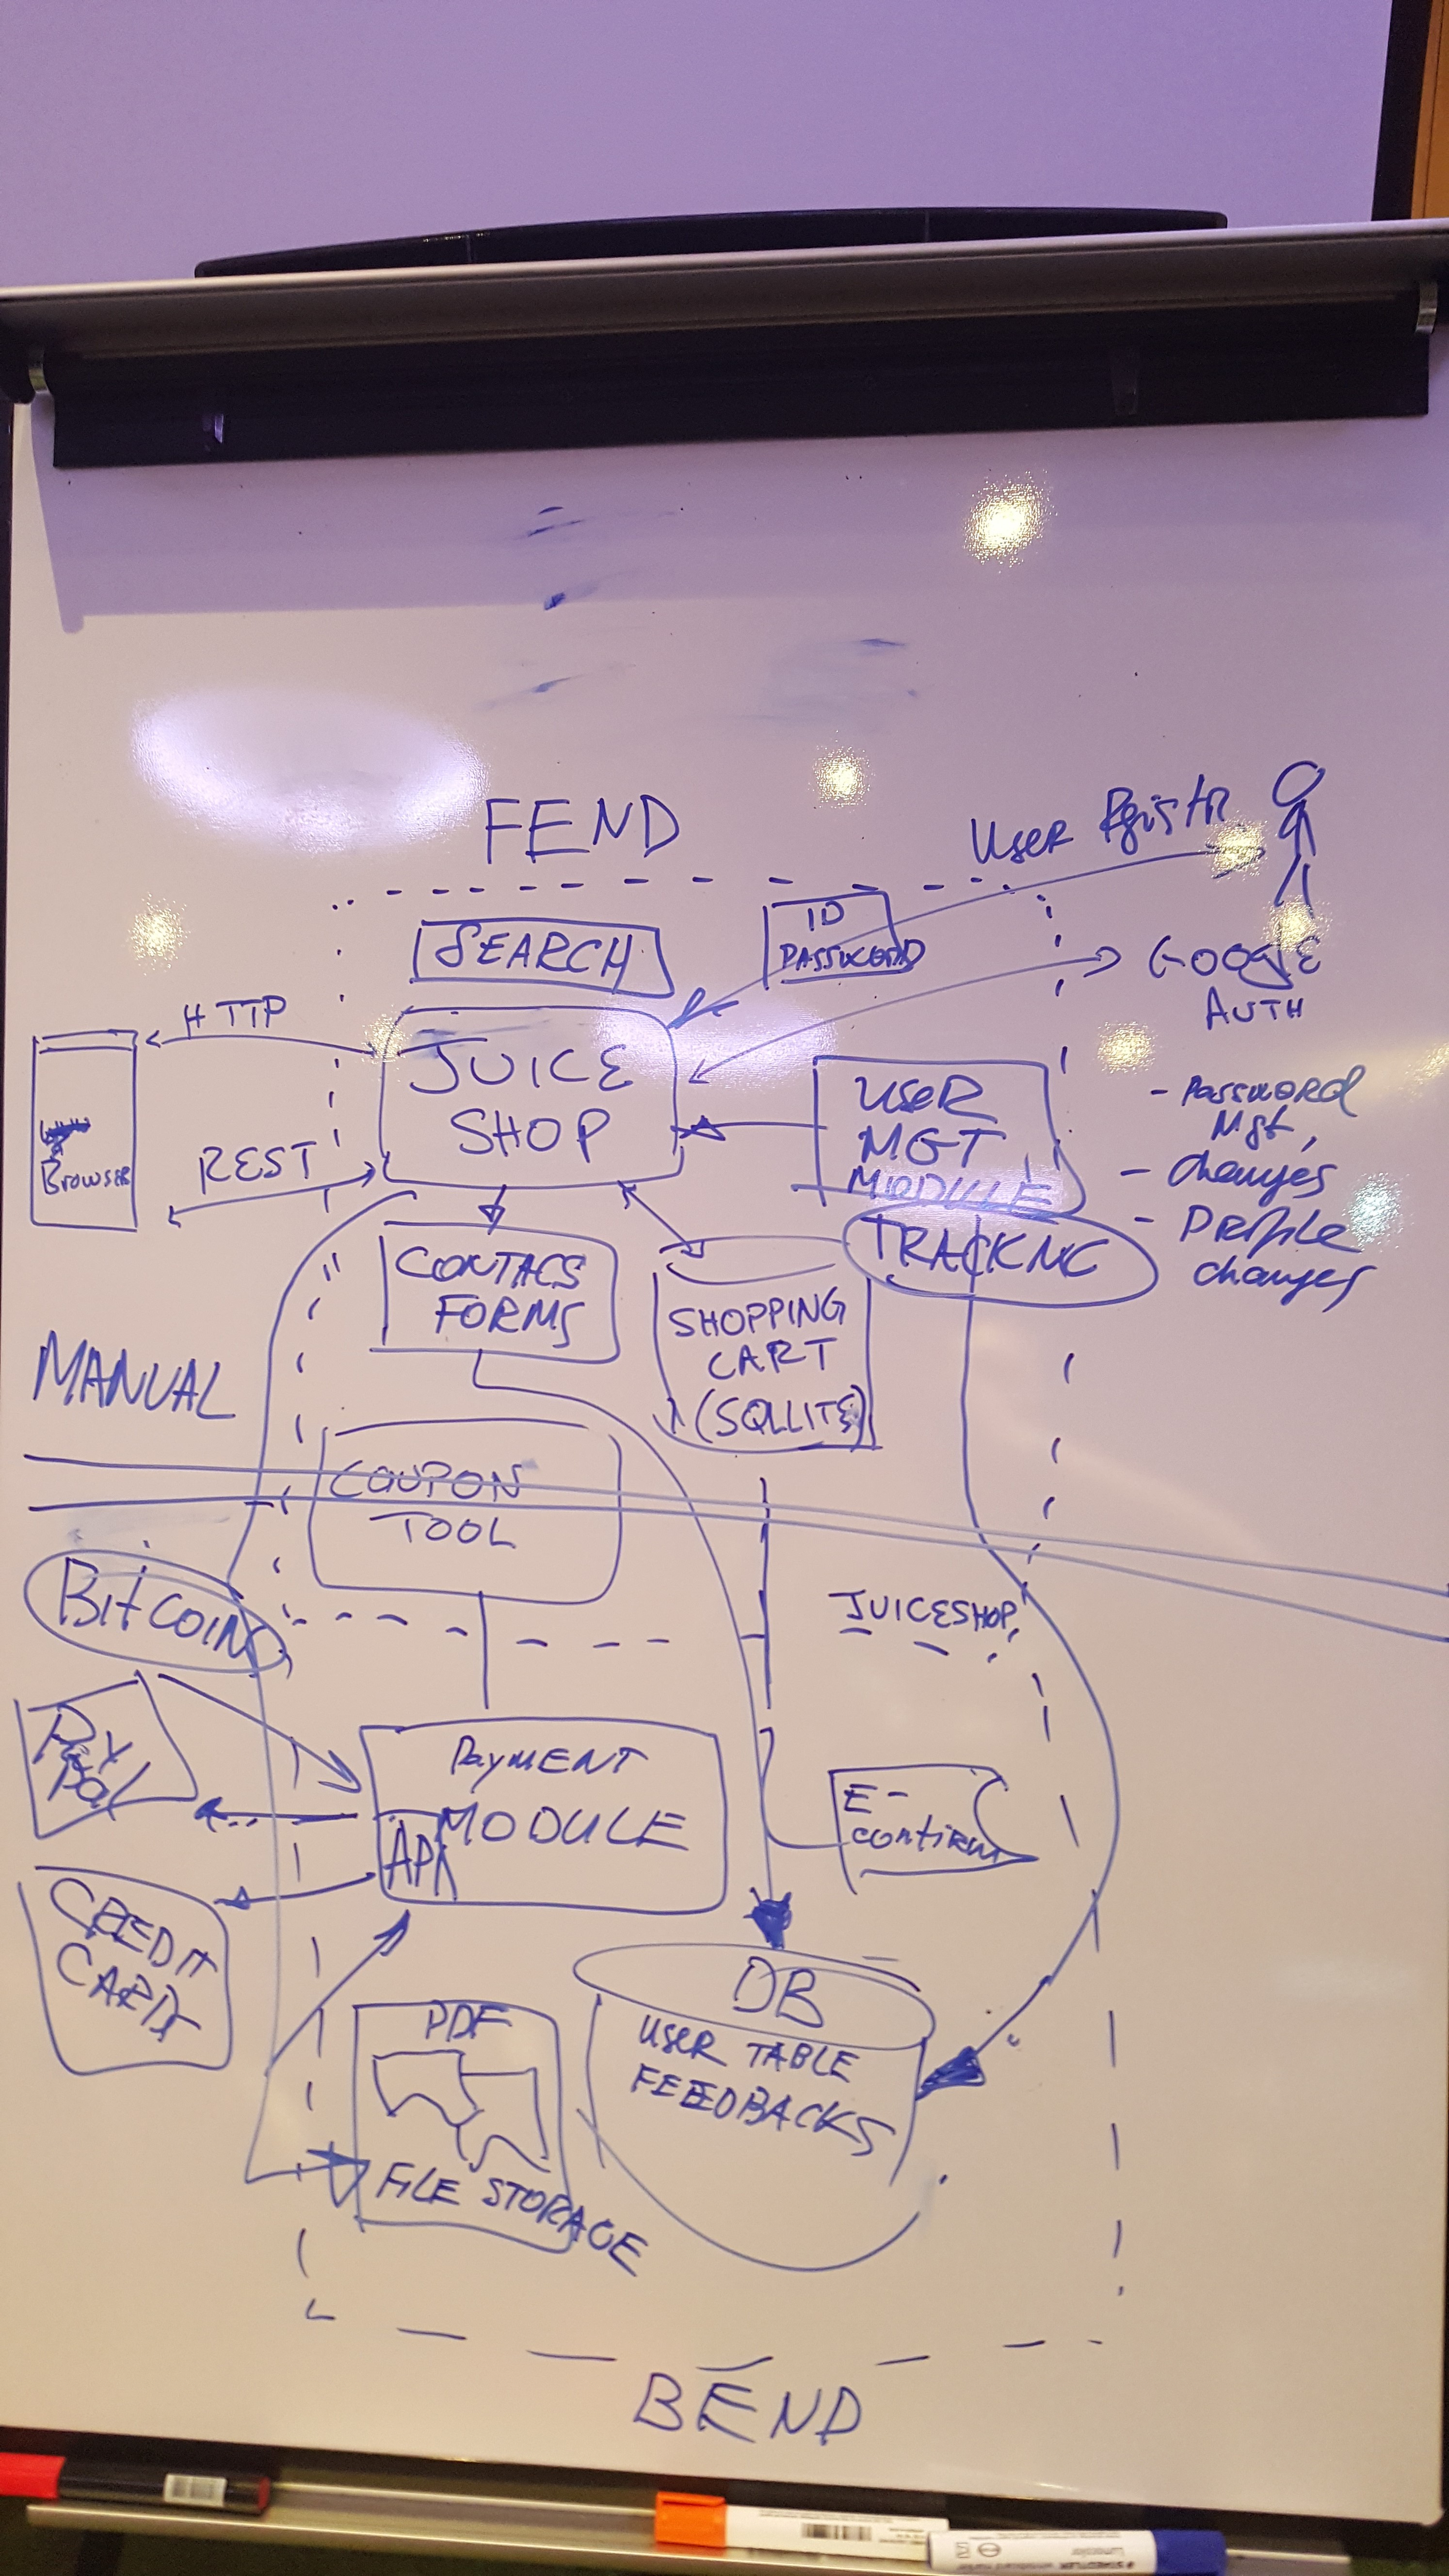 FEND
USER Rgistr.
ID
PASSWORD
SEARCH
GOOGLE
AUTH
HTTP
JUICE
SHOP
USER
MGT
MODULE
- PASSWORD
Mgt,
- changes
- Profile
changes
REST
BROWSER
TRACKNG
CONTACS
FORMS
SHOPPING
CART
(SQLLITE)
MANUAL
COUPON
TOOL
BitCOIN
JUICESHOP
Pay
Pal
PAYMENT
MODULE
API
E-
confirm
CREDIT
CARDS
DB
USER TABLE
FEEDBACKS
PDF
FILE STORAGE
BEND